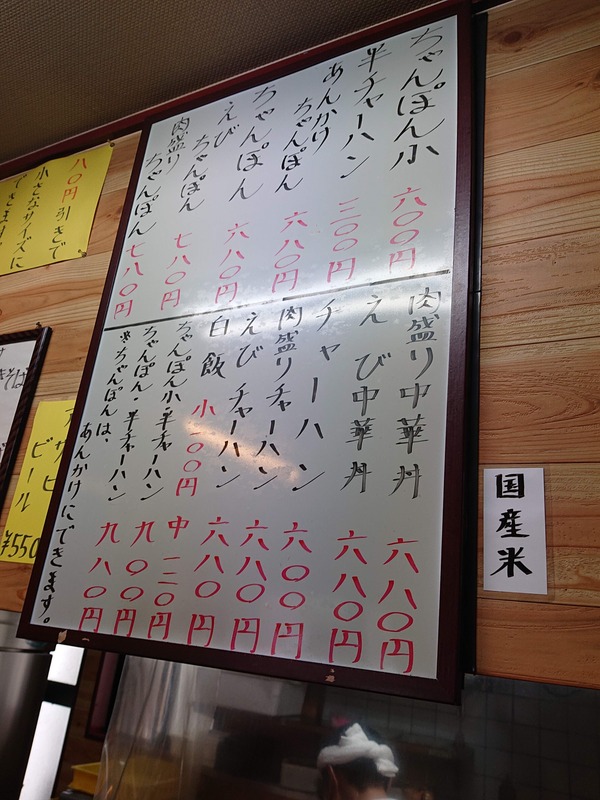 ちゃんぽん小 六〇〇円
半チャーハン 三〇〇円
あんかけ
ちゃんぽん 六八〇円
ちゃんぽん 六八〇円
えび
ちゃんぽん 七八〇円
肉盛り
ちゃんぽん 七八〇円
肉盛り中華丼 六八〇円
えび中華丼 六八〇円
チャーハン 六〇〇円
肉盛りチャーハン 六八〇円
えびチャーハン 六八〇円
白飯 小一〇〇円 中一二〇円
ちゃんぽん小・半チャーハン 九〇〇円
ちゃんぽん・半チャーハン 九八〇円
※ちゃんぽんは、
あんかけにできます。
国産米
八〇円引きで
小さなサイズに
できます。
アサヒ
ビール
¥550